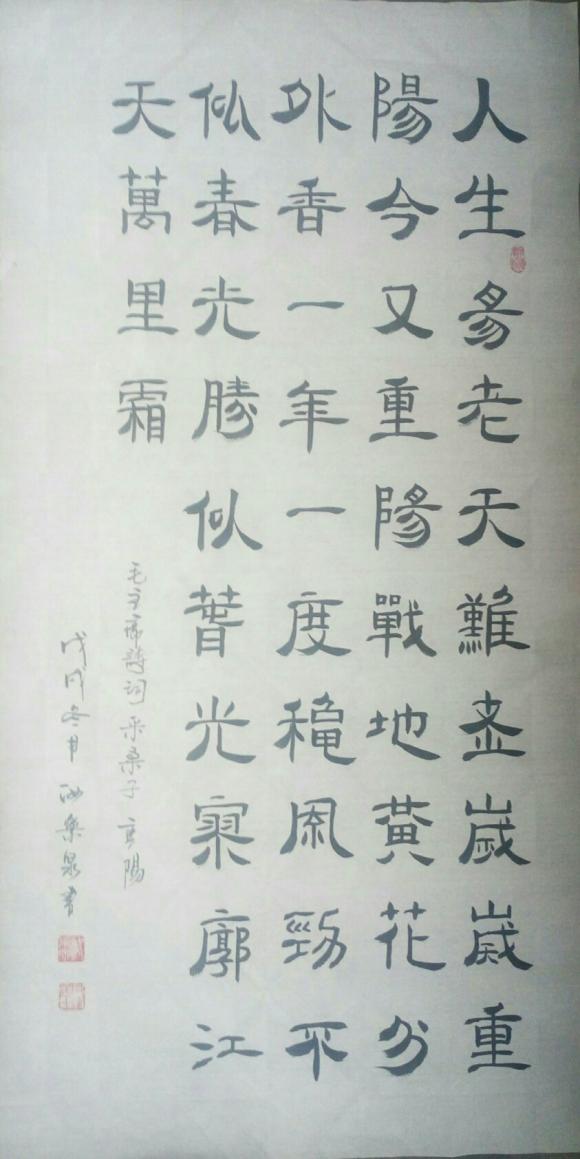 人生易老天難老歲歲重
陽今又重陽戰地黃花分
外香一年一度穐風勁不
似春光勝似萅光寥廓江
天萬里霜
毛主席詩词采桑子重陽
戊戌冬月樂泉書